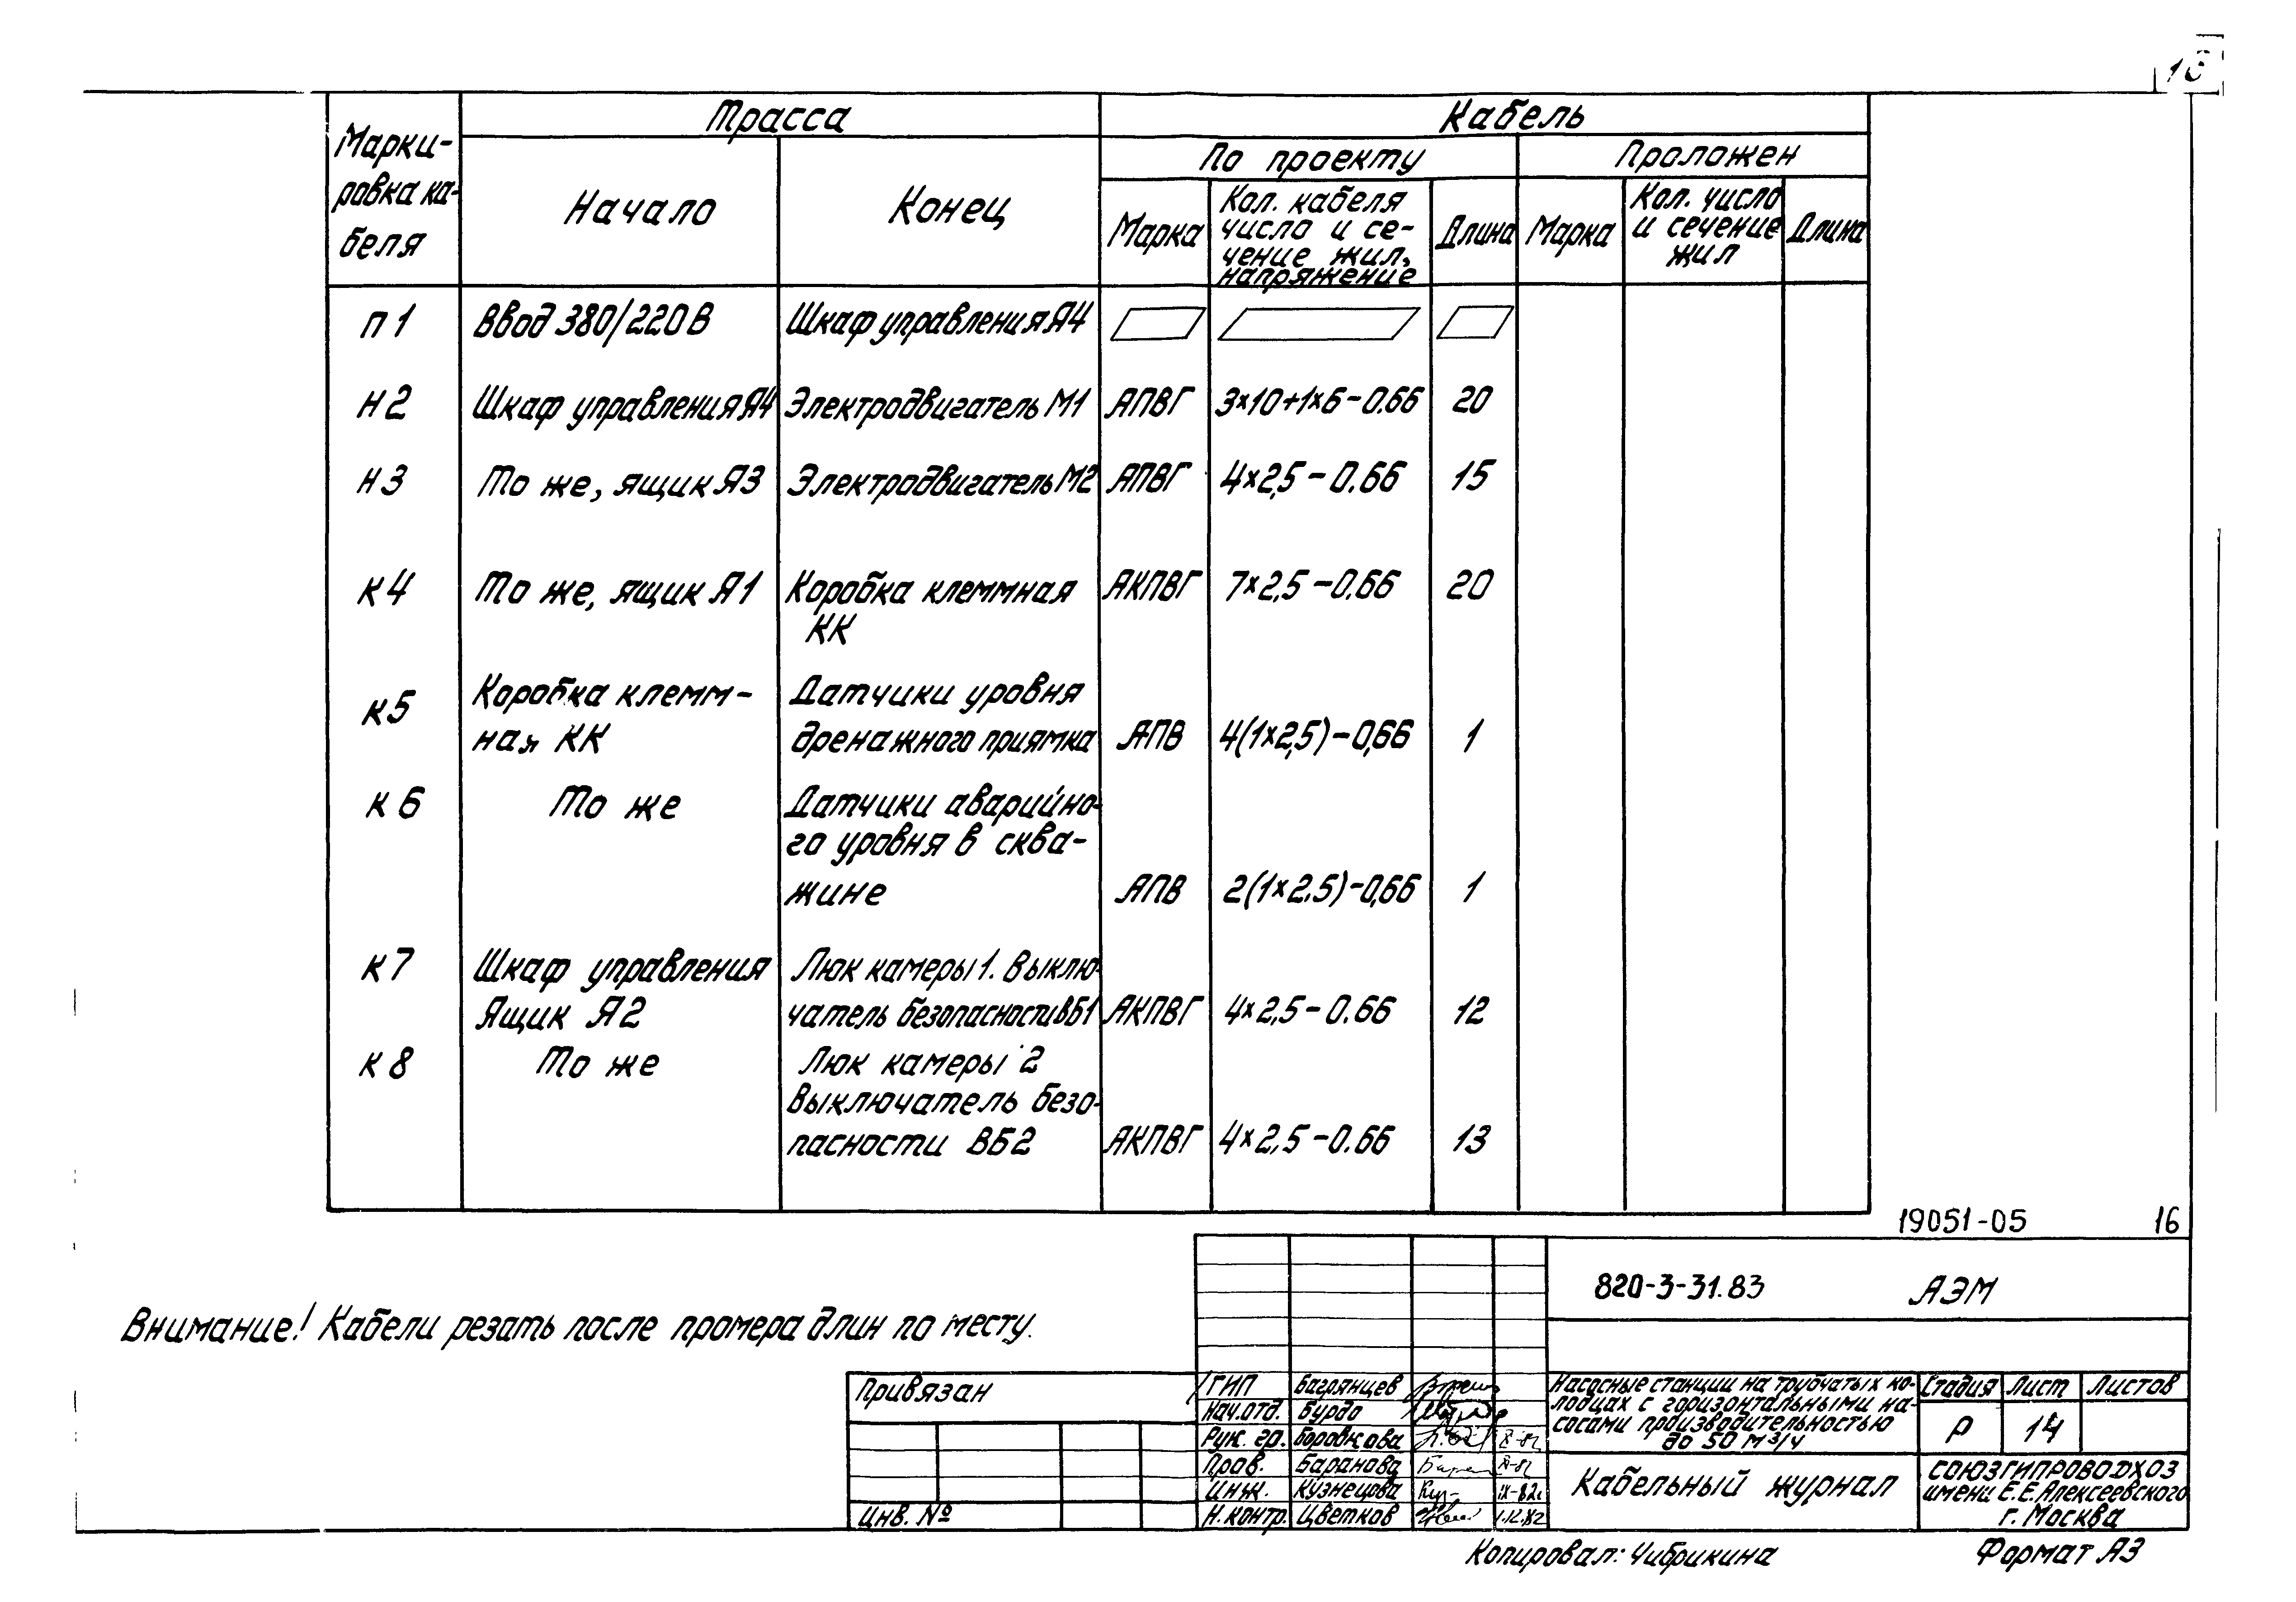 16
Марки-
ровка ка-
беля
Трасса
Кабель
Начало
Конец
По проекту
Проложен
Марка
Кол. кабеля
число и се-
чение жил,
напряжение
Длина
Марка
Кол. число
и сечение
жил
Длина
п1 Ввод 380/220В Шкаф управления Я4
н2 Шкаф управления Я4 Электродвигатель М1 АПВГ 3×10+1×6-0.66 20
н3 То же, ящик Я3 Электродвигатель М2 АПВГ 4×2,5-0.66 15
к4 То же, ящик Я1 Коробка клеммная АКПВГ 7×2,5-0.66 20
КК
к5 Коробка клемм- Датчики уровня
ная КК дренажного приямка АПВ 4(1×2,5)-0,66 1
к6 То же Датчики аварийно-
го уровня в сква-
жине АПВ 2(1×2.5)-0,66 1
к7 Шкаф управления Люк камеры 1. Выклю-
Ящик Я2 чатель безопасности ВБ1 АКПВГ 4×2,5-0.66 12
к8 То же Люк камеры 2
Выключатель безо-
пасности ВБ2 АКПВГ 4×2,5-0.66 13
19051-05 16
820-3-31.83 АЭМ
Внимание! Кабели резать после промера длин по месту.
Привязан
Инв. №
ГИП Багрянцев
Нач.отд. Бурдо
Рук. гр. Боровкова X-82
Пров. Баранова X-82
Инж. Кузнецова IX-82г
Н.контр. Цветков 1.12.82
Насосные станции на трубчатых ко-
лодцах с горизонтальными на-
сосами производительностью
до 50 м³/ч
Стадия Лист Листов
Р 14
Кабельный журнал
СОЮЗГИПРОВОДХОЗ
имени Е.Е.Алексеевского
г. Москва
Копировал: Чибрикина
Формат А3